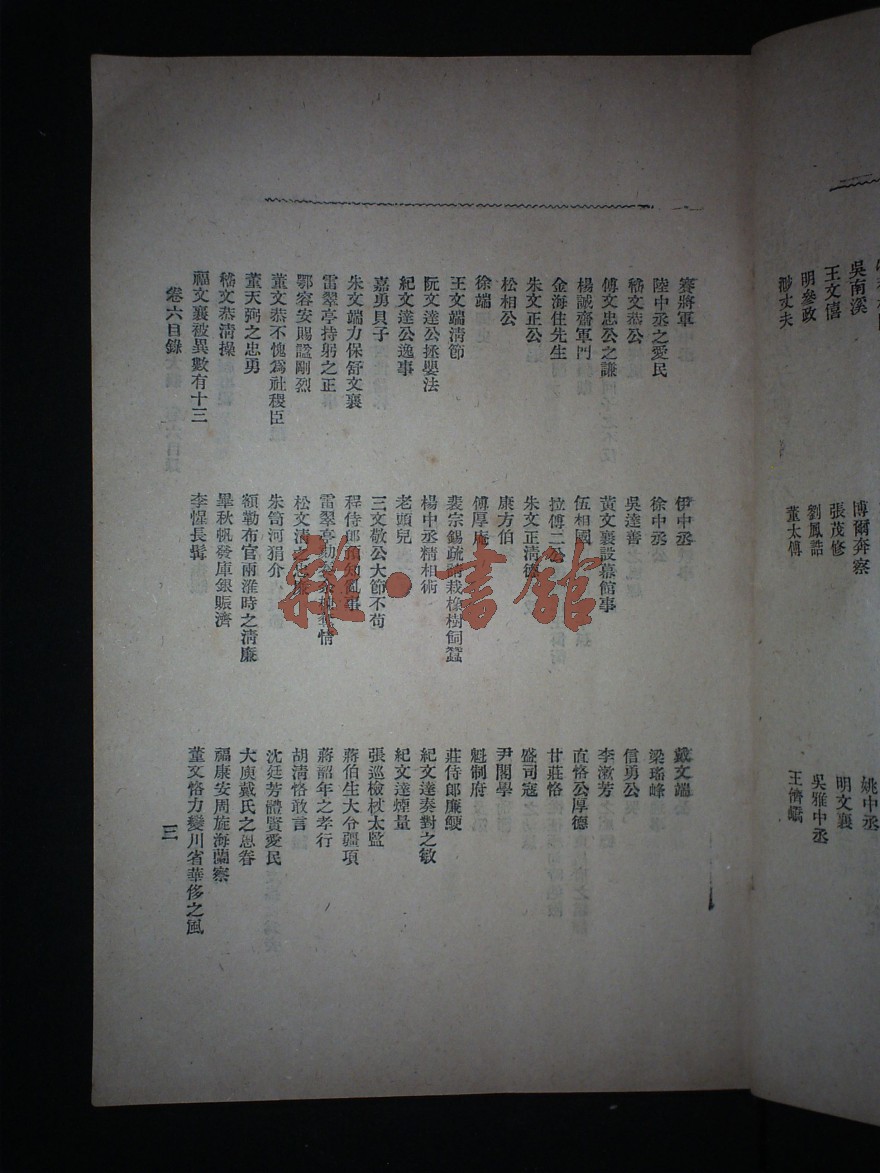 吳南溪
王文僖
明參政
渺丈夫
博爾奔察
張茂修
劉鳳誥
董太傅
姚中丞
明文襄
吳雅中丞
王儕嶠
賽將軍
陸中丞之愛民
嵇文恭公
傅文忠公之謙
楊誠齋軍門
金海住先生
朱文正公
松相公
徐端
王文端清節
阮文達公拯嬰法
紀文達公逸事
嘉勇貝子
朱文端力保舒文襄
雷翠亭持躬之正
鄂容安賜諡剛烈
董文恭不愧爲社稷臣
董天弼之忠勇
嵇文恭清操
福文襄被異數有十三
伊中丞
徐中丞
吳達善
黃文襄設幕館事
伍相國
拉傅二公
朱文正清德
康方伯
傅厚庵
裴宗錫疏請栽橡樹飼蠶
楊中丞精相術
老頭兒
三文敬公大節不苟
程侍郎預知亂事
雷翠亭
松文清之忠
朱笥河狷介
額勒布官兩淮時之清廉
畢秋帆發庫銀賑濟
李惺長髯
戴文端
梁瑤峰
信勇公
李潄芳
直恪公厚德
甘莊恪
盛司寇
尹閣學
魁制府
莊侍郎廉鯁
紀文達奏對之敏
紀文達煙量
張巡檢杖太監
蔣伯生大令疆項
蔣韶年之孝行
胡清恪敢言
沈廷芳體賢愛民
大庾戴氏之恩眷
福康安周旋海蘭察
董文恪力變川省華侈之風
卷六目錄
三
雜·書館